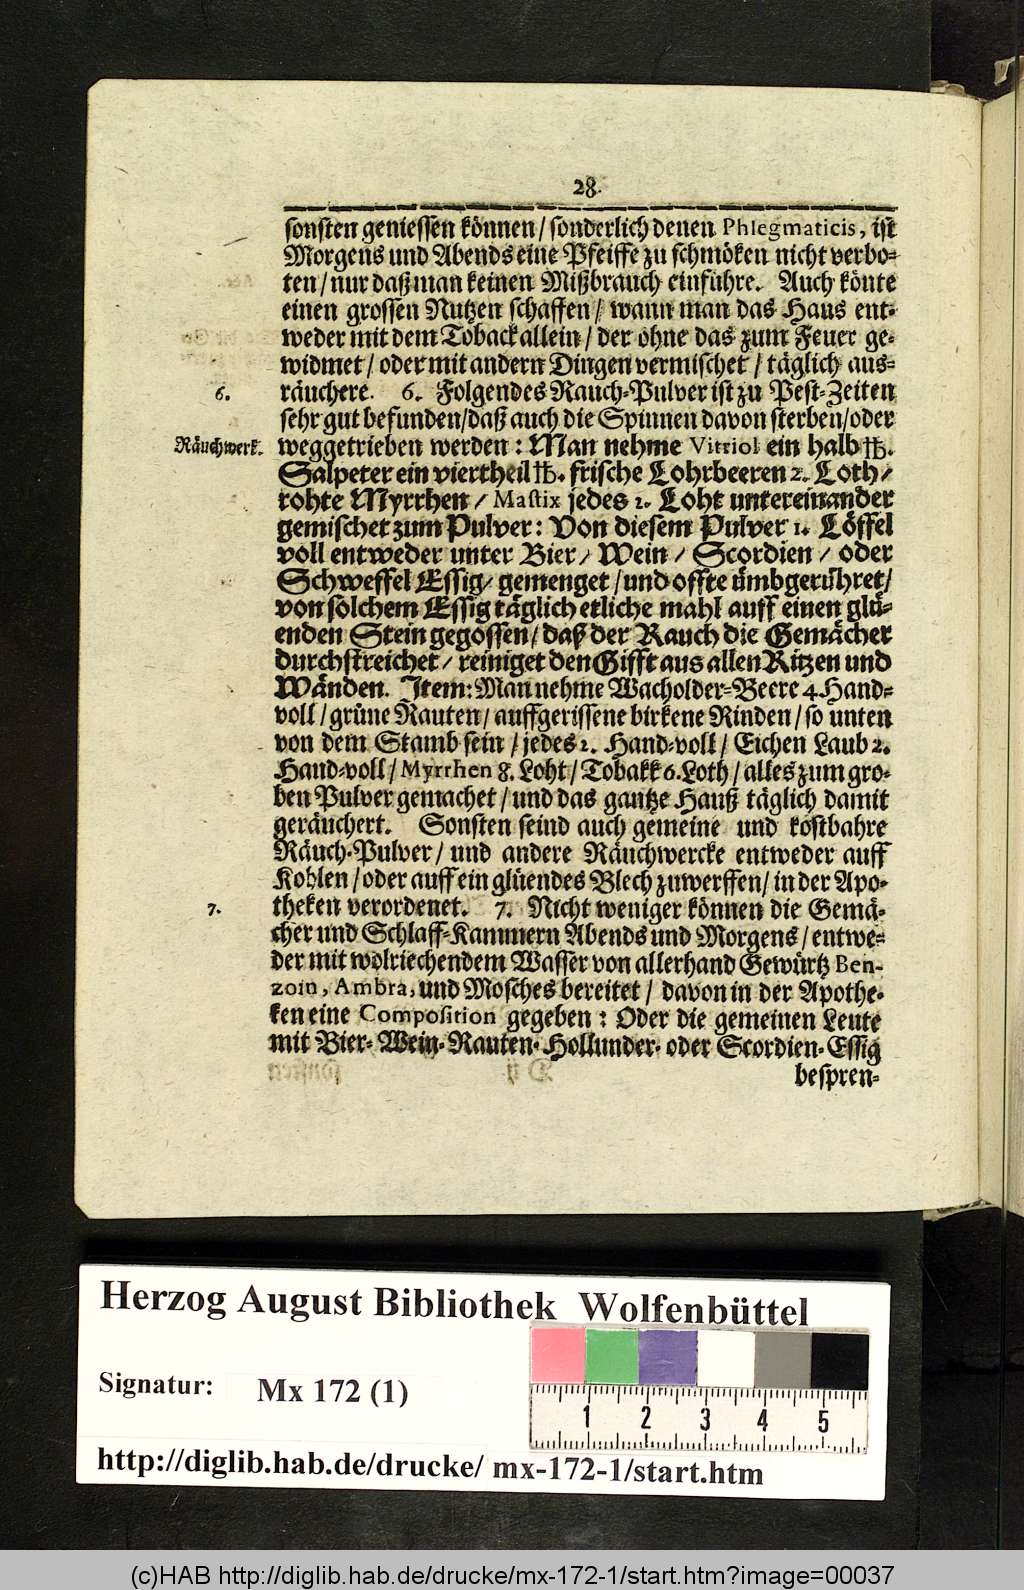 28.
sonsten geniessen können / sonderlich denen Phlegmaticis, ist
Morgens und Abends eine Pfeiffe zu schmöken nicht verbo-
ten / nur daß man keinen Mißbrauch einführe. Auch könte
einen grossen Nutzen schaffen / wann man das Haus ent-
weder mit dem Toback allein / der ohne das zum Feuer ge-
widmet / oder mit andern Dingen vermischet / täglich aus-
6.
räuchere. 6. Folgendes Rauch-Pulver ist zu Pest-Zeiten
sehr gut befunden / daß auch die Spinnen davon sterben / oder
Räuchwerk.
weggetrieben werden : Man nehme Vitriol ein halb ℔.
Salpeter ein viertheil ℔. frische Lohrbeeren 2. Loth /
rohte Myrrhen / Mastix jedes 1. Loht untereinander
gemischet zum Pulver : Von diesem Pulver 1. Löffel
voll entweder unter Bier / Wein / Scordien / oder
Schweffel Essig / gemenget / und offte ümbgerühret /
von solchem Essig täglich etliche mahl auff einen glü-
enden Stein gegossen / daß der Rauch die Gemächer
durchstreichet / reiniget den Gifft aus allen Ritzen und
Wänden. Item: Man nehme Wacholder-Beere 4. Hand-
voll / grüne Rauten / auffgerissene birkene Rinden / so unten
von dem Stamb sein / jedes 1. Hand-voll / Eichen Laub 2.
Hand-voll / Myrrhen 8. Loht / Tobakk 6. Loth / alles zum gro-
ben Pulver gemachet / und das gantze Hauß täglich damit
geräuchert. Sonsten seind auch gemeine und kostbahre
Räuch-Pulver / und andere Räuchwercke entweder auff
Kohlen / oder auff ein glüendes Blech zuwerffen / in der Apo-
7.
theken verordenet. 7. Nicht weniger können die Gemä-
cher und Schlaff-Kammern Abends und Morgens / entwe-
der mit wolriechendem Wasser von allerhand Gewürtz Ben-
zoin, Ambra, und Mosches bereitet / davon in der Apothe-
ken eine Composition gegeben : Oder die gemeinen Leute
mit Bier- Wein- Rauten- Hollunder- oder Scordien- Essig
bespren-
Herzog August Bibliothek Wolfenbüttel
Signatur: Mx 172 (1)
1 2 3 4 5
http://diglib.hab.de/drucke/ mx-172-1/start.htm
(c)HAB http://diglib.hab.de/drucke/mx-172-1/start.htm?image=00037